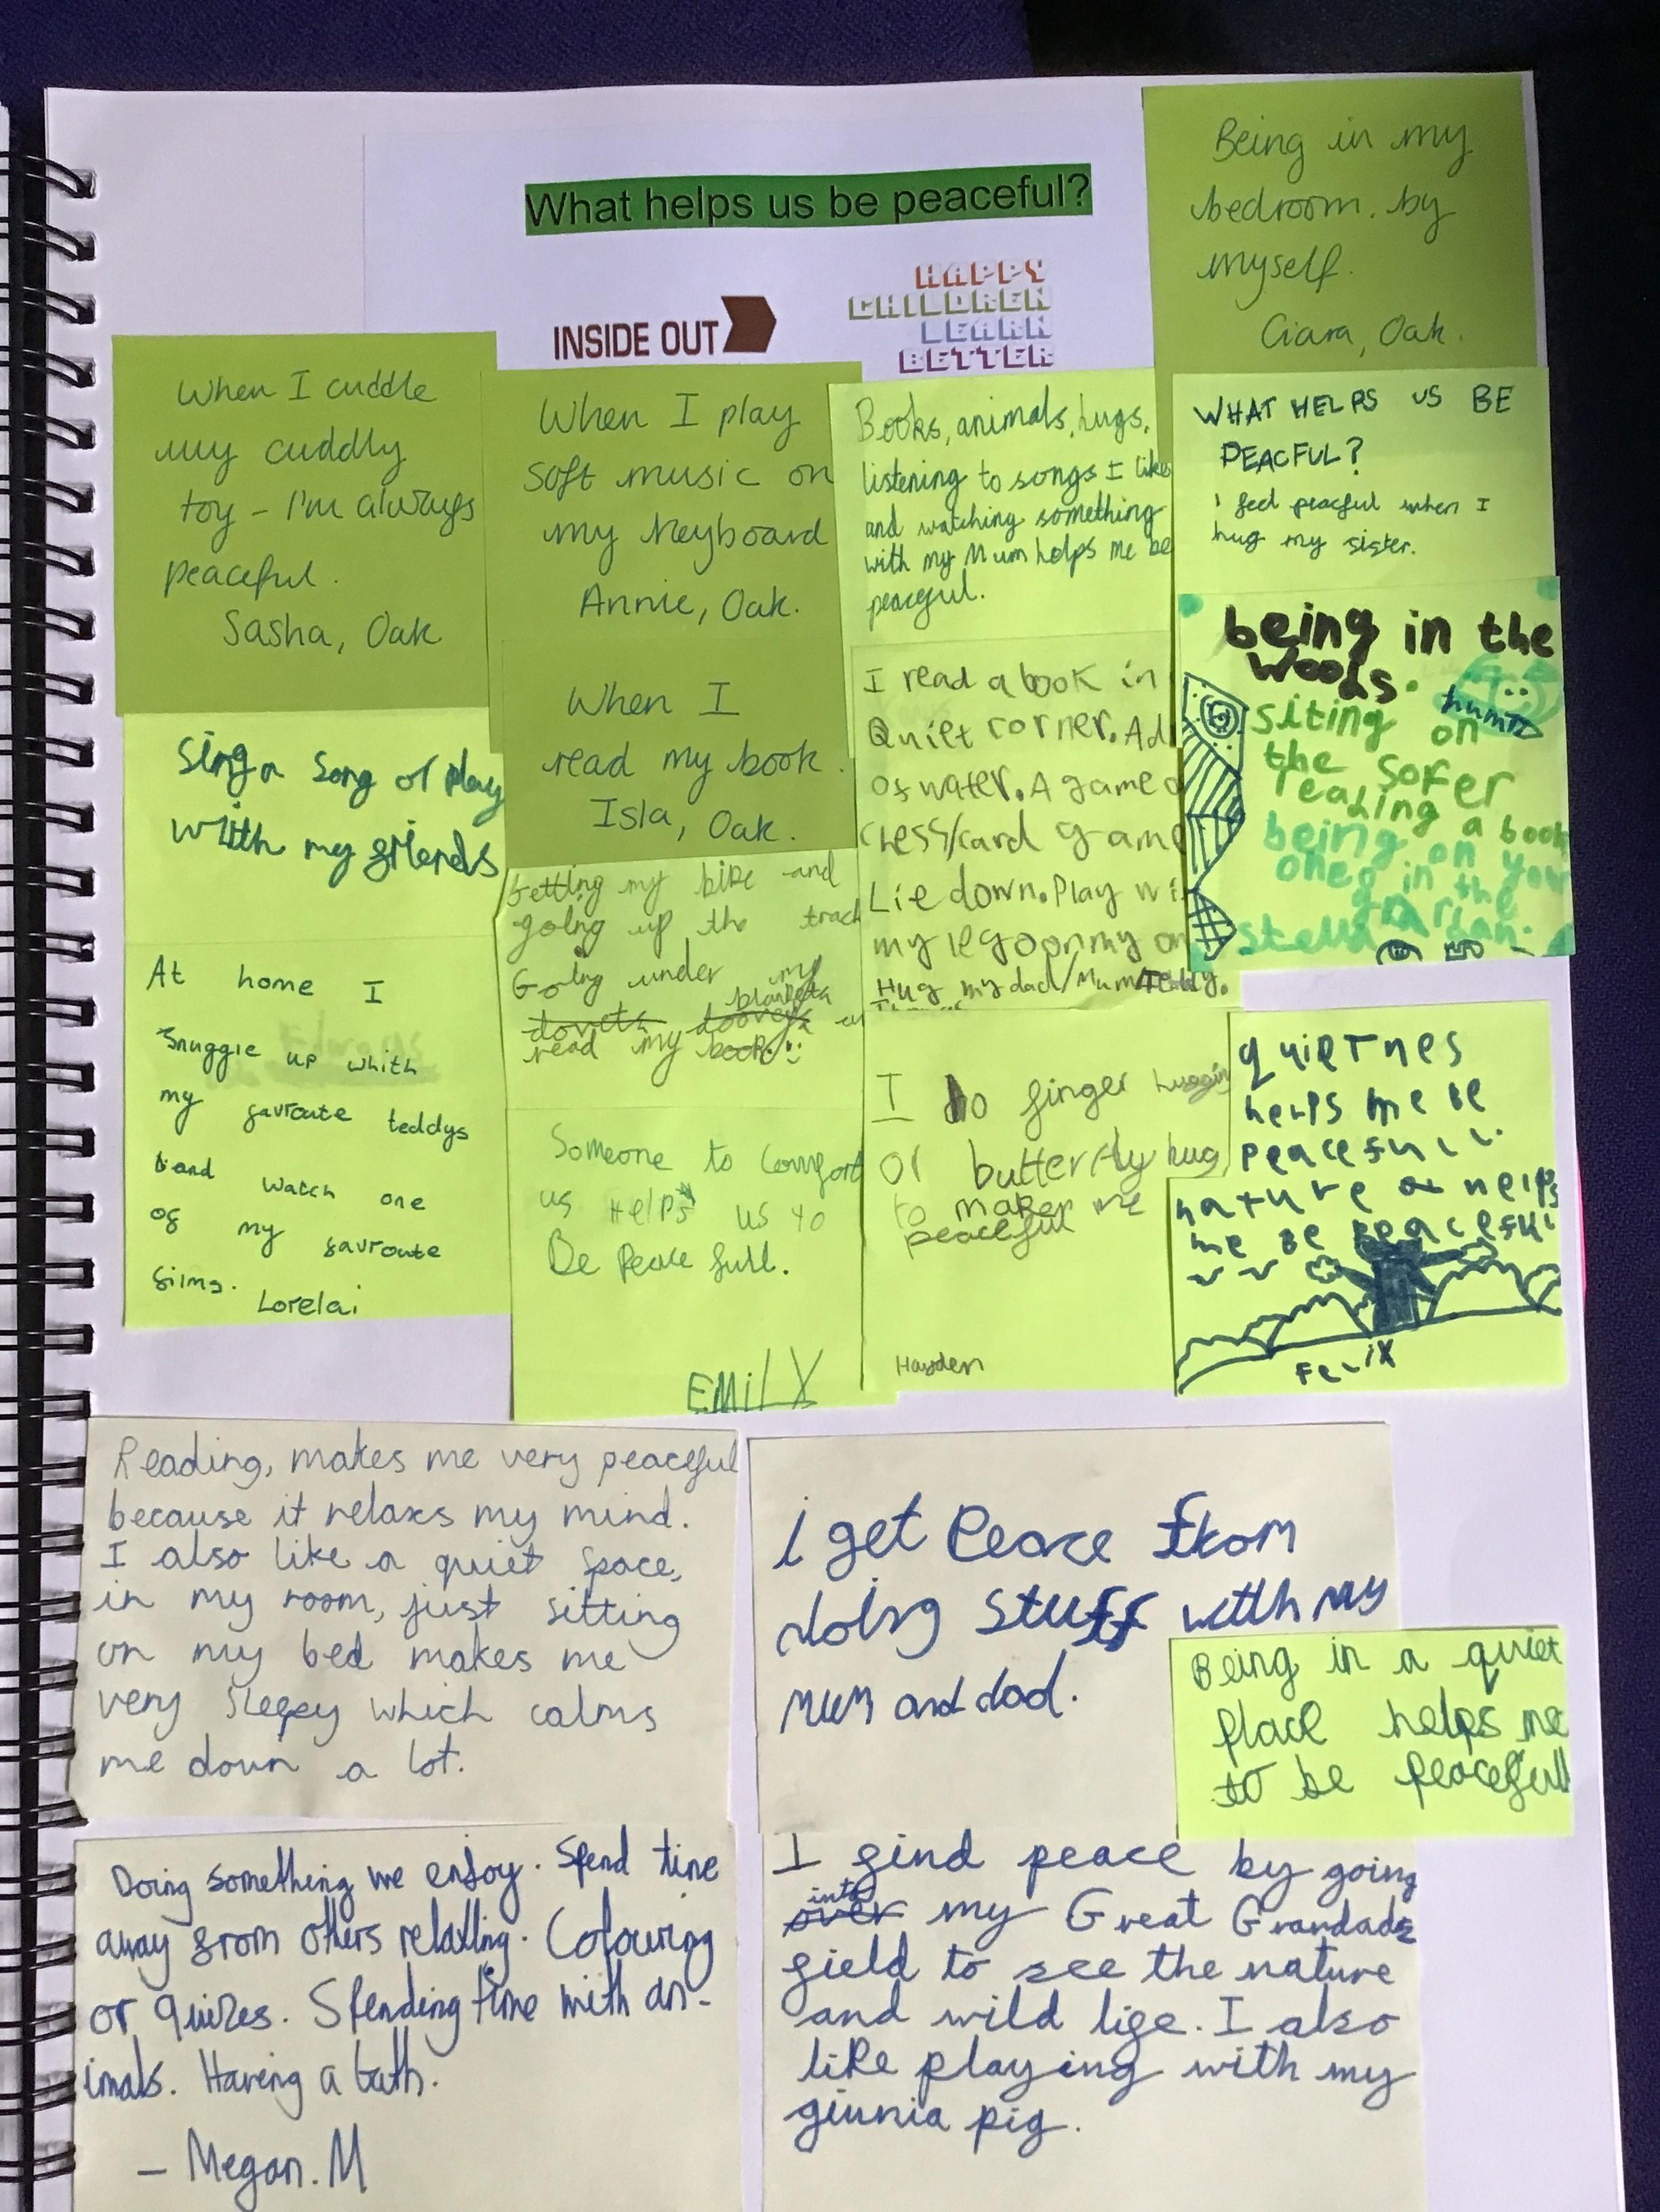 What helps us be peaceful?
INSIDE OUT
HAPPY
CHILDREN
LEARN
BETTER
Being in my
bedroom. by
myself.
Ciara, Oak.
When I cuddle
my cuddly
toy - I'm always
peaceful.
Sasha, Oak
When I play
soft music on
my keyboard
Annie, Oak.
Books, animals, hugs,
listening to songs I like
and watching something
with my Mum helps me be
peaceful.
WHAT HELPS US BE
PEACFUL?
i feel peacful when I
hug my sister.
Sing a song or play
with my friends
When I
read my book.
Isla, Oak.
I read a book in
Quiet corner. A
of water. A game
chess/card game
Lie down. Play
my lego on my
Hug my dad/Mum/Teddy.
being in the
woods.
siting on
the sofer
reading a book
being on your
one in the
garden.
At home I
snuggle up whith
my favroute teddys
and watch one
of my favroute
films.
Lorelai
Getting my bike and
going up the track
Going under my
blankets
dovets
read my book.
Someone to comfort
us Helps us to
Be Peace full.
EMILY
I do finger
or butterfly hug
to make me
peaceful
Hayden
quietnes
helps me be
peacefull.
nature helps
me be peaceful
FeLiX
Reading, makes me very peaceful
because it relaxs my mind.
I also like a quiet space,
in my room, just sitting
on my bed makes me
very sleepy which calms
me down a lot.
i get Peace from
doing stuff with my
mum and dad.
Being in a quiet
place helps me
to be peacefull
Doing something we enjoy. Spend time
away from others relaxing. Colouring
or quizes. Spending time with an-
imals. Having a bath.
- Megan. M
I find peace by going
into
over my Great Grandads
field to see the nature
and wild life. I also
like playing with my
giunia pig.